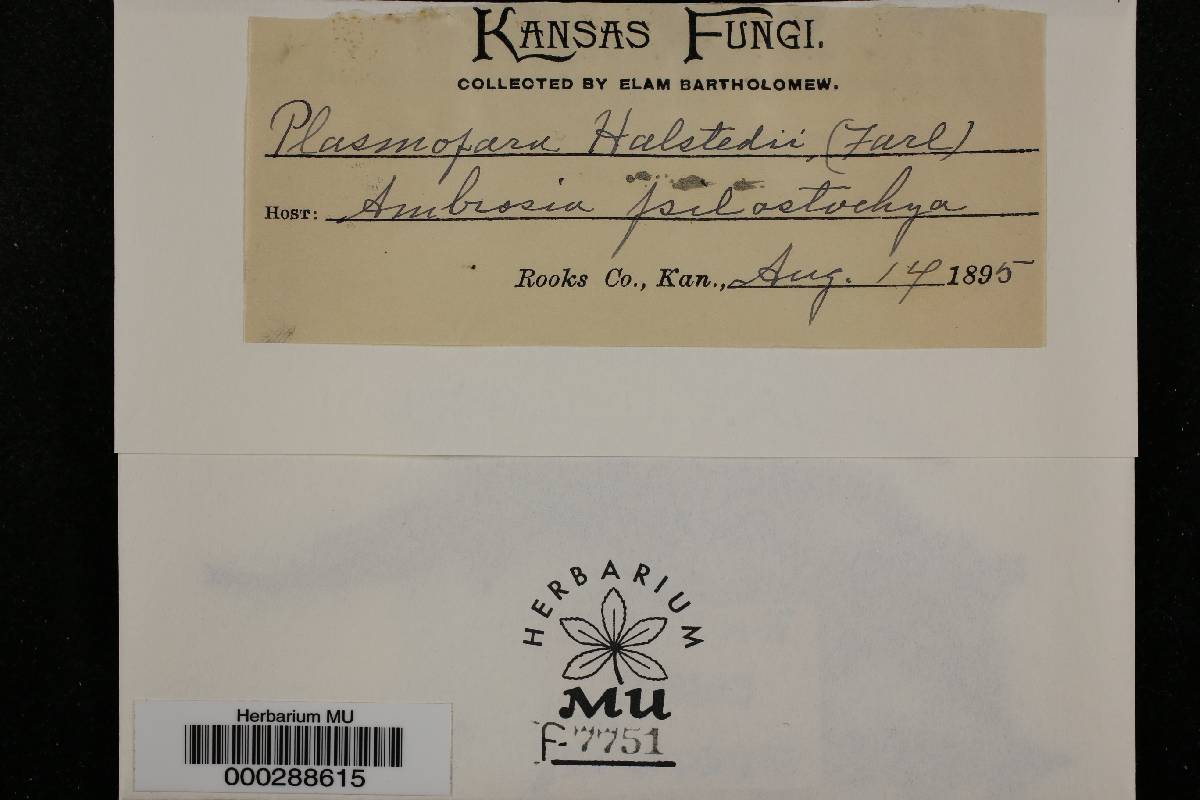 KANSAS FUNGI.
COLLECTED BY ELAM BARTHOLOMEW.
Plasmopara Halstedii, (Farl)
HOST: Ambrosia psilostachya
Rooks Co., Kan., Aug. 14 1895
HERBARIUM
MU
F-7751
Herbarium MU
000288615